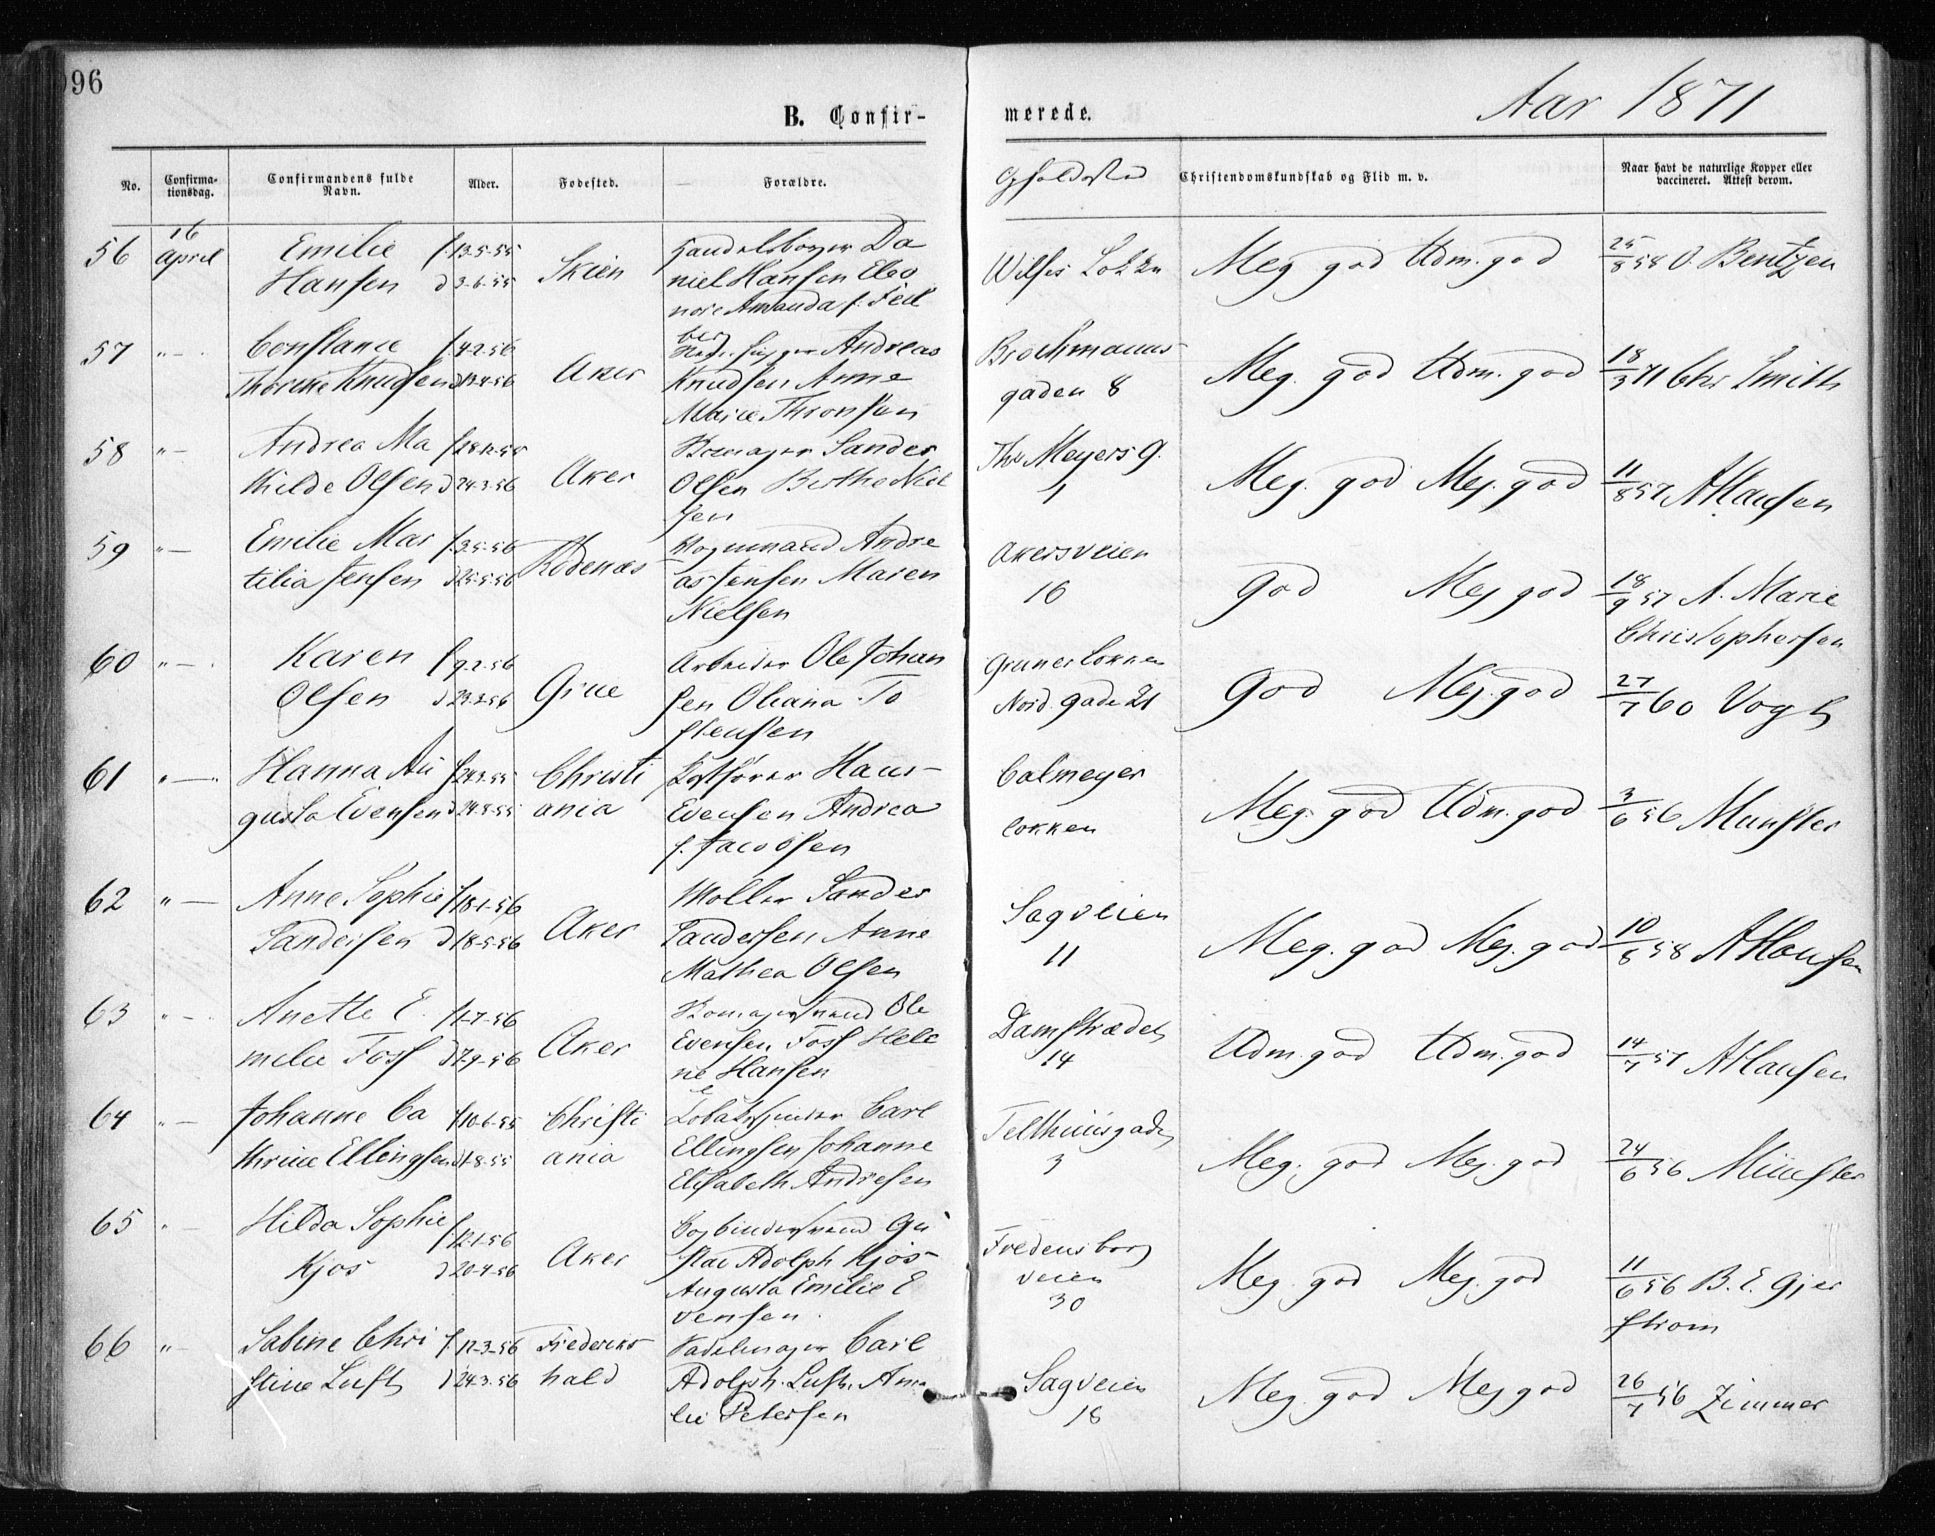 96
Aar 1871
B. Confir-
merede.
No.
Confirma-
tionsdag.
Confirmandens fulde
Navn.
Alder.
Fødested.
Forældre.
Opholdssted
Christendomskundskab og Flid m. v.
Naar havt de naturlige Kopper eller
vaccineret. Attest derom.
56 16 April Emilie Hansen f. 13-5-55 d 3-6-55 Skien Daniel Hansen Eleonore Amanda f. Løkken Meg. god Udm. god 25/8 58 O. Bentzen
57 " — Constance Knudsen f. 4-2-56 d 13-4-56 Aker Andreas Knudsen Anne Marie Thronsen Brochmanns gaden 8 Meg. god Udm. god 18/3 71 Chr Smith
58 " — Andrea Mathilde Olsen d 24-3-56 Aker Sander Olsen Berthe Nielsen Thv Meyers g. 1 Meg. god Meg. god 11/8 57 A Hansen
59 " — Emilie Martilia Jensen f. 3-5-56 d 25-5-56 Rødenæs Andreas Jensen Maren Nielsen Akersveien 16 God Meg god 18/9 57 A. Marie Christophersen
60 " — Karen Olsen f 9-2-56 d 23-3-56 Grue Arbeider Ole Johansen Oliana Tostensen Grunerløkken Nord. gade 21 God Meg. god 27/7 60 Vogt
61 " — Hanna Augusta Evensen f 24-3-55 d 24-8-55 Christiania Hans Evensen Andrea f. Jacobsen Calmeyer løkken Meg. god Udm. god 3/6 56 Munster
62 " — Anne Sophie Sandersen f 18-1-56 d 18-5-56 Aker Møller Sander Sandersen Anne Mathea Olsen Sagveien 11 Meg. god Meg. god 10/8 58 A Hansen
63 " — Anette Emelie Foss f 1-7-56 d 7-9-56 Aker Ole Evensen Foss Helene Hansen Damstrædet 14 Udm. god Udm. god 14/7 57 A Hansen
64 " — Johanne Cathrine Ellingsen f 10-6-55 d 1-8-55 Christiania Carl Ellingsen Johanne Elisabeth Andresen Telthuusgaden 3 Meg. god Meg. god 24/6 56 Münster
65 " — Hilda Sophie Kjos f 12-1-56 d 20-4-56 Aker Bogbindersvend Gustav Adolph Kjos Augusta Emilie Evensen. Fredensborg veien 30 Meg. god Meg. god 11/6 56 B. E. Gjerstrøm
66 " — Sabine Christine Luft f 12-3-56 d 24-3-56 Frederikshald Sadelmager Carl Adolph Luft. Amalie Petersen Sagveien 18 Meg. god Meg god 26/7 56 Zimmer